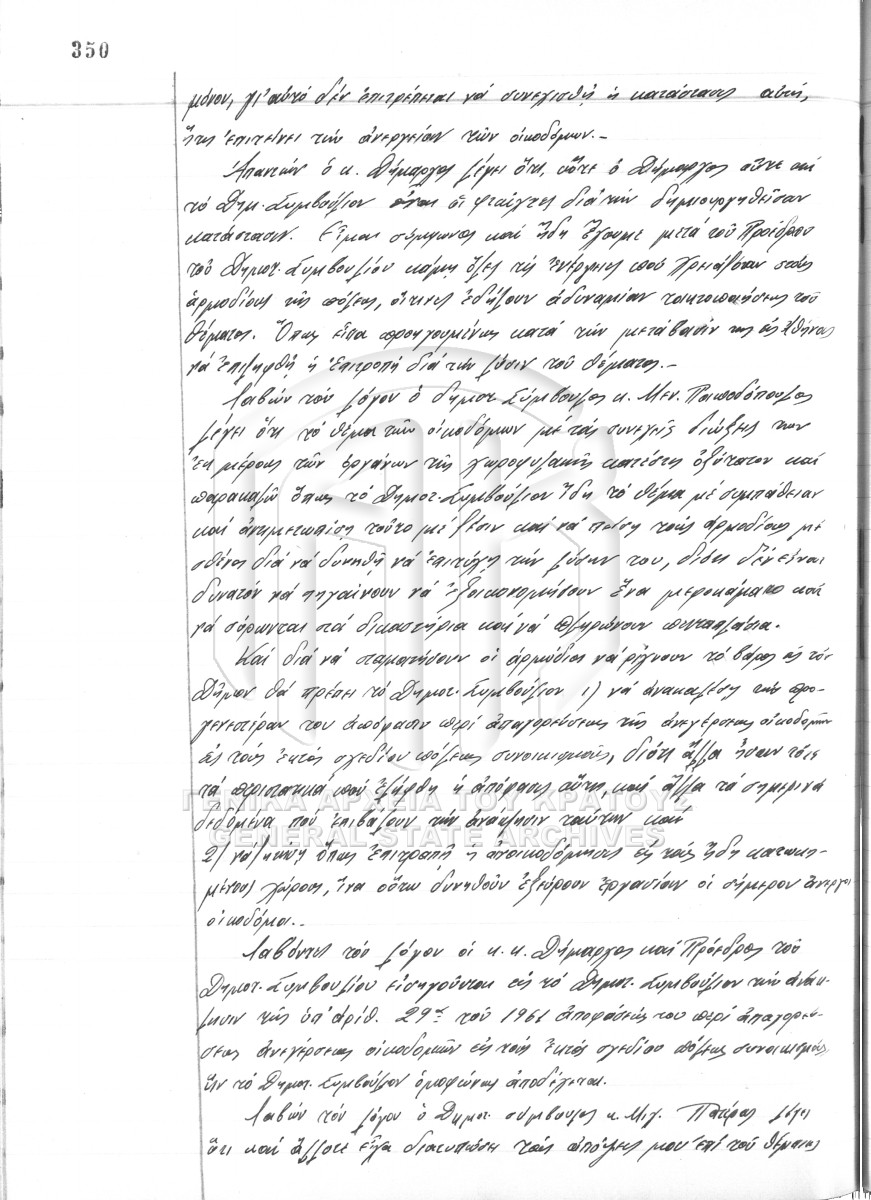 350
μόνον, γι' αὐτό δέν ἐπιτρέπεται νά συνεχισθῇ ἡ κατάστασις αὐτή,
ἥτις ἐπιτείνει τήν ἀνεργείαν τῶν οἰκοδόμων.-
Ἀπαντῶν ὁ κ. Δήμαρχος λέγει ὅτι, οὔτε ὁ Δήμαρχος οὔτε καί
τό Δημ. Συμβούλιον εἶναι οἱ φταῖχτες διά τήν δημιουργηθεῖσαν
κατάστασιν. Εἶμαι σύμφωνος καί ἤδη ἔχουμε μετά τοῦ Προέδρου
τοῦ Δημοτ. Συμβουλίου κάμῃ ὅλες τίς ἐνέργειες πού χρειάζοταν στούς
ἁρμοδίους τῆς πόλεως, οἵτινες ἐδήλουν ἀδυναμίαν τακτοποιήσεως τοῦ
θέματος. Ὅπως εἶπα προηγουμένως κατά τήν μετάβασίν της εἰς Ἀθήνας
νά ἐπιληφθῇ ἡ ἐπιτροπή διά τήν λύσιν τοῦ θέματος.-
Λαβών τόν λόγον ὁ δημοτ. Σύμβουλος κ. Μεν. Παπαδόπουλος
λέγει ὅτι τό θέμα τῶν οἰκοδόμων μέ τάς συνεχεῖς διώξεις των
ἐκ μέρους τῶν ὀργάνων τῆς χωροφυλακῆς κατέστη ὀξύτατον καί
παρακαλῶ ὅπως τό Δημοτ. Συμβούλιον ἴδῃ τό θέμα μέ συμπάθειαν
καί ἀντιμετωπίσῃ τοῦτο μέ θέσιν καί νά πείσῃ τούς ἁρμοδίους μέ
σθένος διά νά δυνηθῇ νά ἐπιτύχῃ τήν λύσιν του, διότι δέν εἶναι
δυνατόν νά πηγαίνουν νά ἐξοικονομήσουν ἕνα μεροκάματο καί
νά σύρωνται στά δικαστήρια καί νά πληρώνουν πενταπλάσια.
Καί διά νά σταματήσουν οἱ ἁρμόδιοι νά ρίχνουν τό βάρος εἰς τόν
Δῆμον θά πρέπει τό Δημοτ. Συμβούλιον 1) νά ἀνακαλέσῃ τήν προ-
γενεστέραν του ἀπόφασιν περί ἀπαγορεύσεως τῆς ἀνεγέρσεως οἰκοδομῶν
εἰς τούς ἐκτός σχεδίου πόλεως συνοικισμούς, διότι ἄλλα ἦσαν τότε
τά περιστατικά πού ἐλήφθη ἡ ἀπόφασις αὕτη, καί ἄλλα τά σημερινά
δεδομένα πού ἐπιβάλουν τήν ἀνάκλησιν ταύτης καί
2/ νά ὅπως ἐπιτραπῇ ἡ ἀνοικοδόμησις εἰς τούς ἤδη κατωκη-
μένους χώρους, ἵνα οὕτω δυνηθοῦν ἐξεύρουν ἐργασίαν οἱ σήμερον ἄνεργοι
οἰκοδόμοι.-
Λαβόντες τόν λόγον οἱ κ.κ. Δήμαρχος καί Πρόεδρος τοῦ
Δημοτ. Συμβουλίου εἰσηγοῦνται εἰς τό Δημοτ. Συμβούλιον τήν ἀνάκ-
λησιν τῆς ὑπ' ἀριθ. 29ης τοῦ 1961 ἀποφάσεώς του περί ἀπαγορεύ-
σεως ἀνεγέρσεως οἰκοδομῶν εἰς τούς ἐκτός σχεδίου πόλεως συνοικισμούς,
ἥν τό Δημοτ. Συμβούλιον ὁμοφώνως ἀποδέχεται.
Λαβών τόν λόγον ὁ Δημοτ. σύμβουλος κ. Μιχ. Πατέρας λέγει
ὅτι καί ἄλλοτε εἶχα διατυπώσει τάς ἀπόψεις μου ἐπί τοῦ θέματος
ΓΕΝΙΚΑ ΑΡΧΕΙΑ ΤΟΥ ΚΡΑΤΟΥΣ
GENERAL STATE ARCHIVES